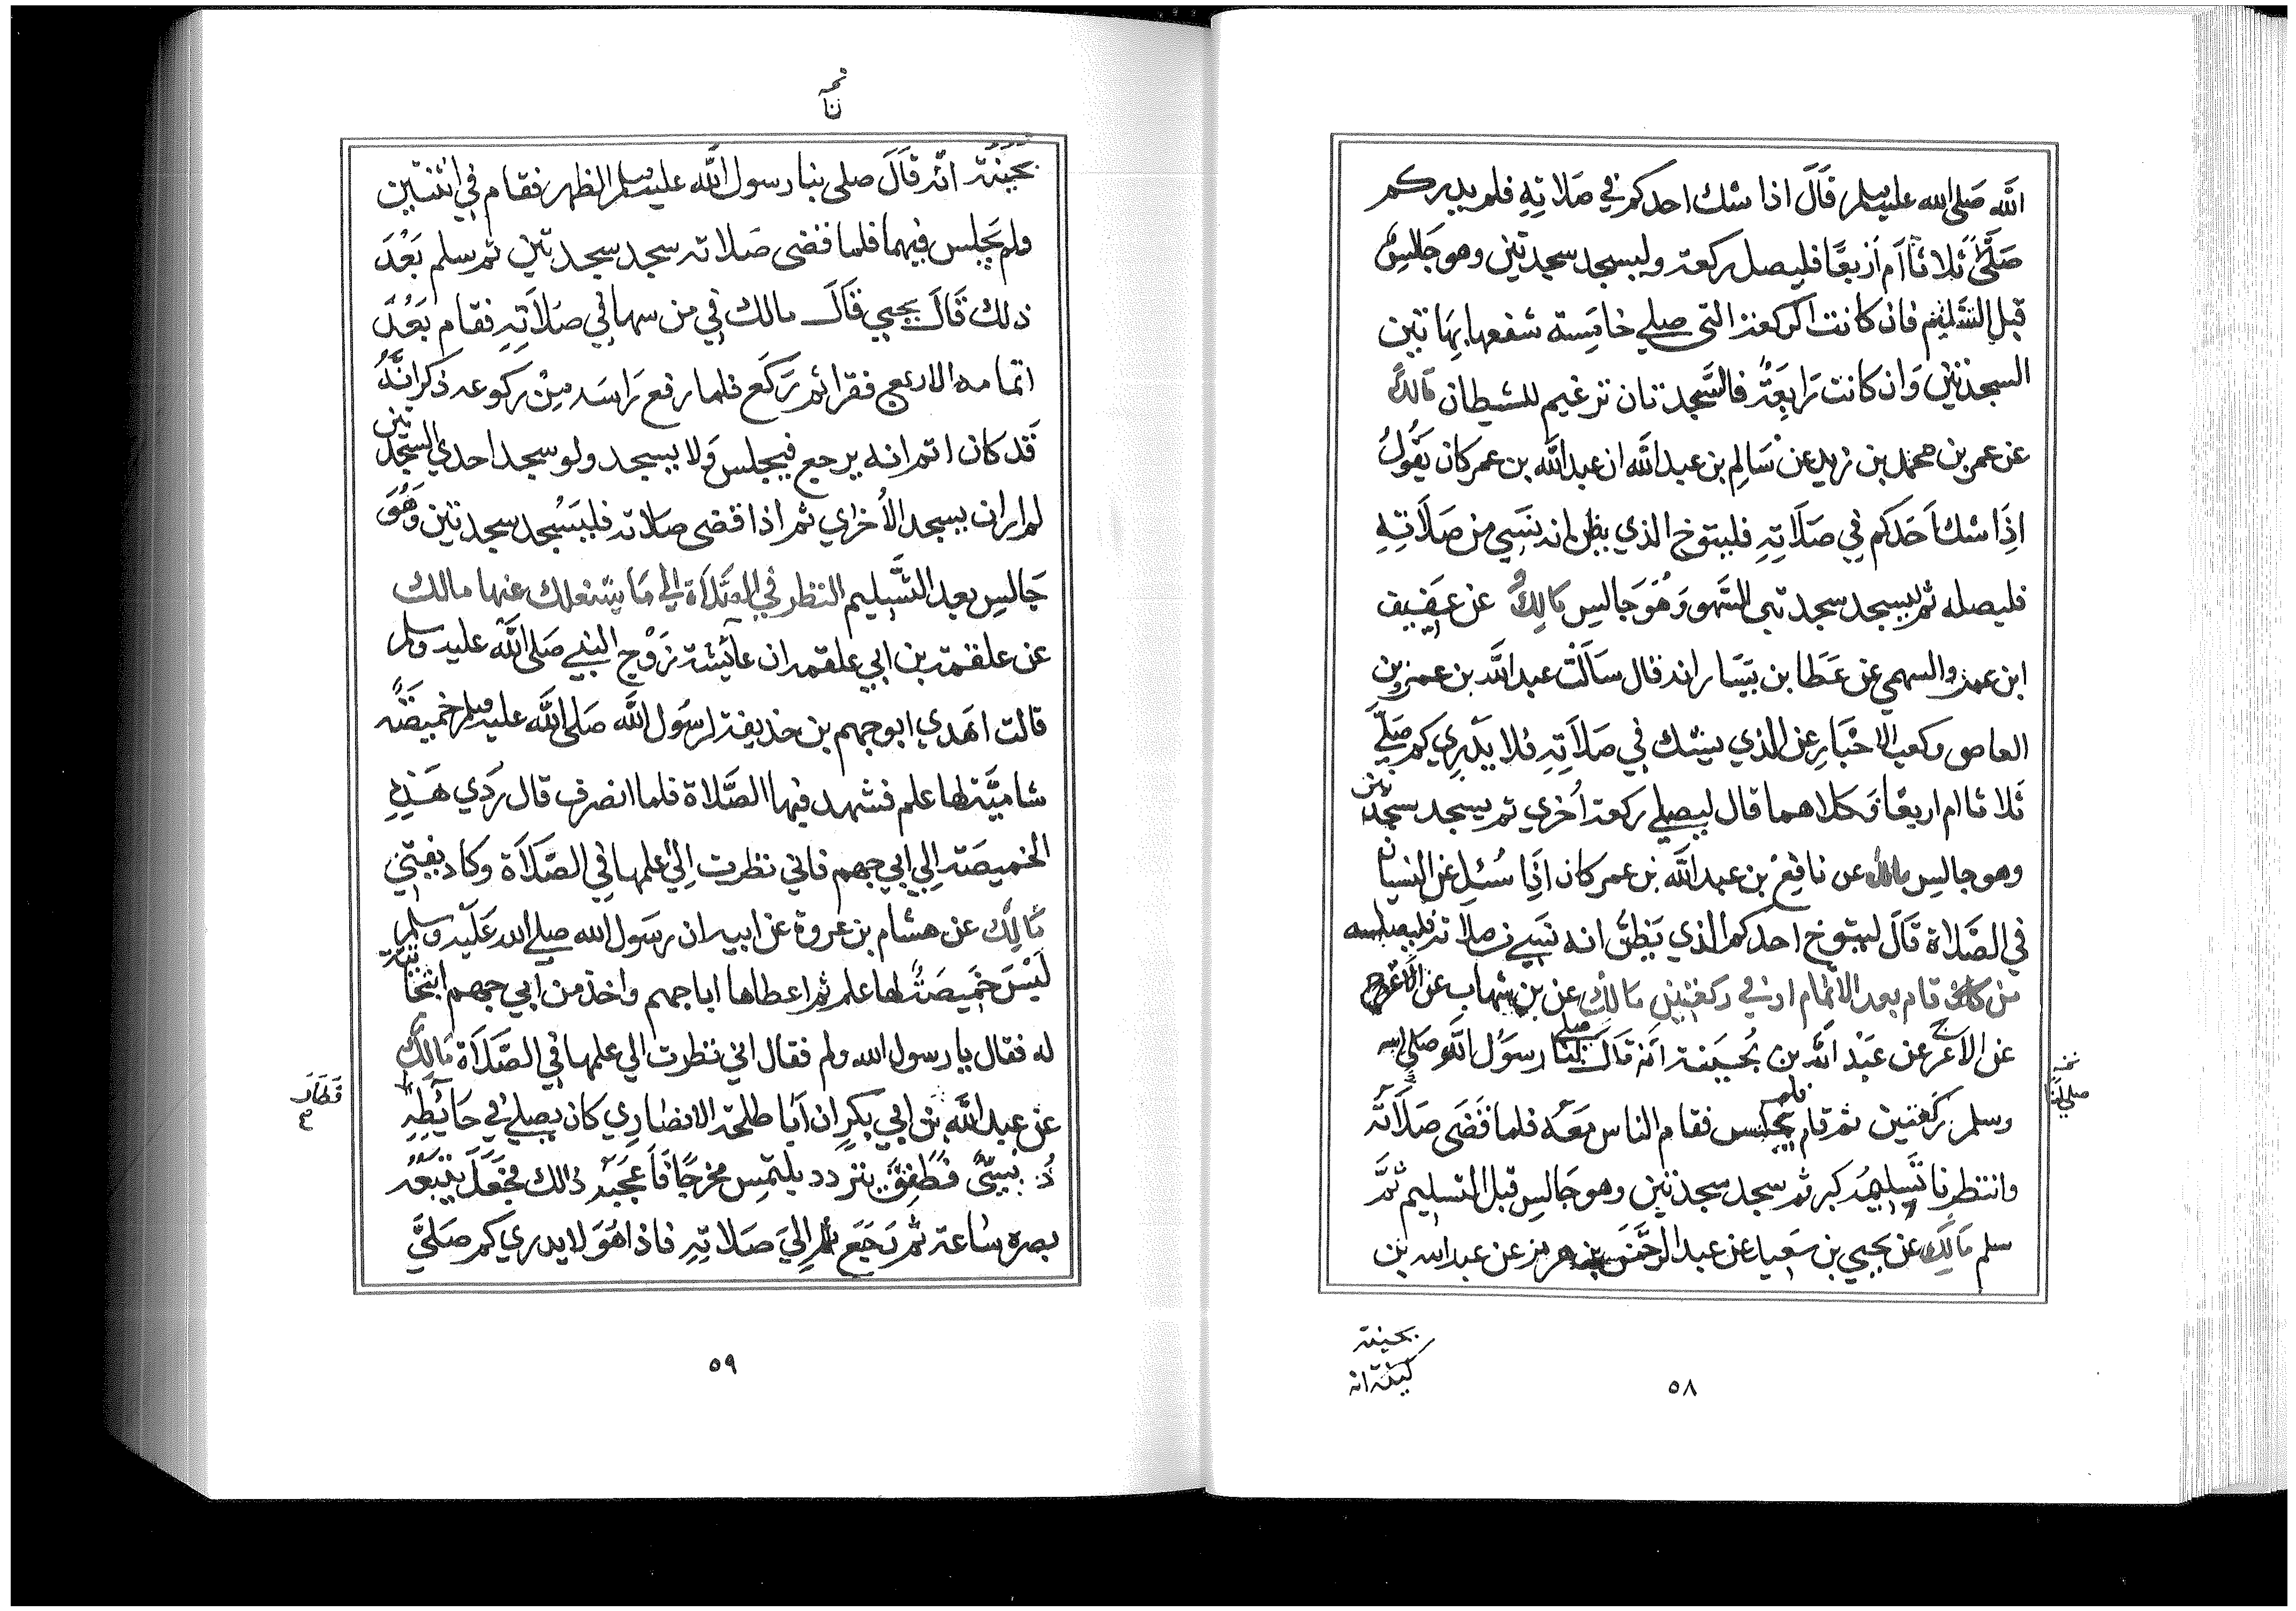 الله صلى الله عليه وسلم قال اذا شك احدكم في صلاته فلم يدر كم
صلى ثلاثا أم أربعا فليصل ركعة وليسجد سجدتين وهو جالس
قبل التسليم فان كانت الركعة التي صلي خامسة شفعها بهاتين
السجدتين وان كانت رابعة فالسجدتان ترغيم للشيطان مالك
عن عمر بن محمد بن زيد عن سالم بن عبد الله ان عبد الله بن عمر كان يقول
اذا شك احدكم في صلاته فليتوخ الذي يظن انه نسي من صلاته
فليصله ثم ليسجد سجدتي السهو وهو جالس مالك عن عفيف
ابن عمرو السهمي عن عطا بن يسار انه قال سالت عبد الله بن عمرو بن
العاص وكعب الاحبار عن الذي يشك في صلاته فلا يدري كم صلي
ثلاثا ام اربعا فكلاهما قال ليصلي ركعة أخري ثم يسجد سجدتين
وهو جالس مالك عن نافع بن عبد الله بن عمر كان اذا سئل عن النسيان
في الصلاة قال ليتوخ احدكم الذي يظن انه نسي من صلاته فليصله
من قام بعد الاتمام او في ركعتين مالك عن بن شهاب عن الاعرج
عن الاعرج عن عبد الله بن بحينة انه قال صلى لنا رسول الله صلى الله
وسلم ركعتين ثم قام فلم يجلس فقام الناس معه فلما قضى صلاته
وانتظرنا تسليمه كبر ثم سجد سجدتين وهو جالس قبل التسليم ثم
سلم مالك عن يحيي بن سعيد عن عبد الرحمن بن هرمز عن عبد الله بن
صلى لنا
بحينة
انه
٥٨
بحينة انه قال صلى بنا رسول الله عليه وسلم الظهر فقام في اثنتين
ولم يجلس فيهما فلما قضى صلاته سجد سجدتين ثم سلم بعد
ذلك قال يحيي قال مالك في من سها في صلاته فقام بعد
اتمامه الاربع فقرا ثم ركع فلما رفع راسه من ركوعه ذكر انه
قد كان اتم انه يرجع فيجلس ولا يسجد ولو سجد احدي السجدتين
لم ار ان يسجد الأخري ثم اذا قضى صلاته فليسجد سجدتين وهو
جالس بعد التسليم النظر في الصلاة الي ما يشغلك عنها مالك
عن علقمة بن ابي علقمه ان عائشة زوج النبي صلى الله عليه وسلم
قالت اهدي ابو جهم بن حذيفة لرسول الله صلى الله عليه وسلم خميصة
شامية لها علم فشهد فيها الصلاة فلما انصرف قال ردي هذه
الخميصة الي ابي جهم فاني نظرت الي علمها في الصلاة وكاد يفتنني
مالك عن هشام بن عروة عن ابيه ان رسول الله صلي الله عليه وسلم
لبس خميصة لها علم ثم اعطاها ابا جهم واخذ من ابي جهم انبجانية
له فقال يا رسول الله ولم فقال اني نظرت الي علمها في الصلاة مالك
عن عبد الله بن ابي بكر ان أبا طلحة الانصاري كان يصلي في حائطه
فطفق يتردد يلتمس مخرجا فأعجبه ذالك فجعل يتبعه
بصره ساعة ثم رجع الي صلاته فاذا هو لا يدري كم صلي
٥٩